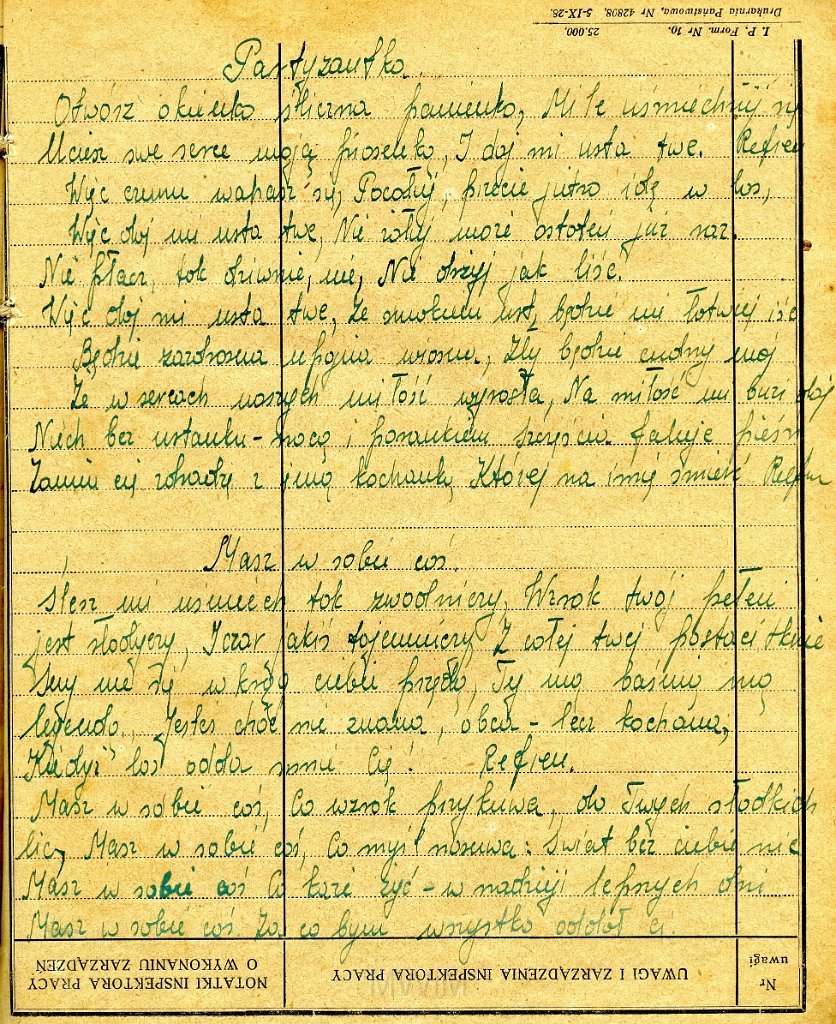 I. P. Form. Nr 10. 25.000.
Drukarnia Państwowa, Nr 42808. 5-IX-28.
Partyzantka
Otwórz okienko śliczna panienko, Mile uśmiechnij się
Uciesz swe serce moją piosenką, I daj mi usta twe. Refren
Więc czemu wahasz się, Pocałuj, przecie jutro idę w las,
Więc daj mi usta twe, Nie żałuj może ostatni już raz.
Nie płacz, tak dziwnie, nie, Nie drżyj jak liść.
Więc daj mi usta twe, Ze smakiem ust, będzie mi łatwiej iść
Będzie zazdrosna upojna wiosna, Zły będzie cudny maj
Że w sercach naszych miłość wyrosła, Na miłość mi buzi daj
Niech bez ustanku - nocą i porankiem szczęścia faluje pieśń
Zanim cię zdradzę z inną kochanką, Której na imię śmierć Refren
Masz w sobie coś.
Ślesz mi uśmiech tak zwodniczy, Wzrok twój pełen
jest słodyczy, I czar jakiś tajemniczy Z całej twej postaci tknie
Sny me się w krąg ciebie przędą, Ty mą baśnią mą
legendą, Jesteś choć nie znana, obca - lecz kochana,
Kiedyż los odda mnie Cię! Refren.
Masz w sobie coś, Co wzrok przykuwa, do Twych słodkich
lic, Masz w sobie coś, Co myśl nasuwa: Świat bez ciebie nic
Masz w sobie coś Co każe żyć - w nadzieji lepszych dni
Masz w sobie coś. Za co bym wszystko oddał ci.
NOTATKI INSPEKTORA PRACY O WYKONANIU ZARZĄDZEŃ
UWAGI I ZARZĄDZENIA INSPEKTORA PRACY
Nr uwagi